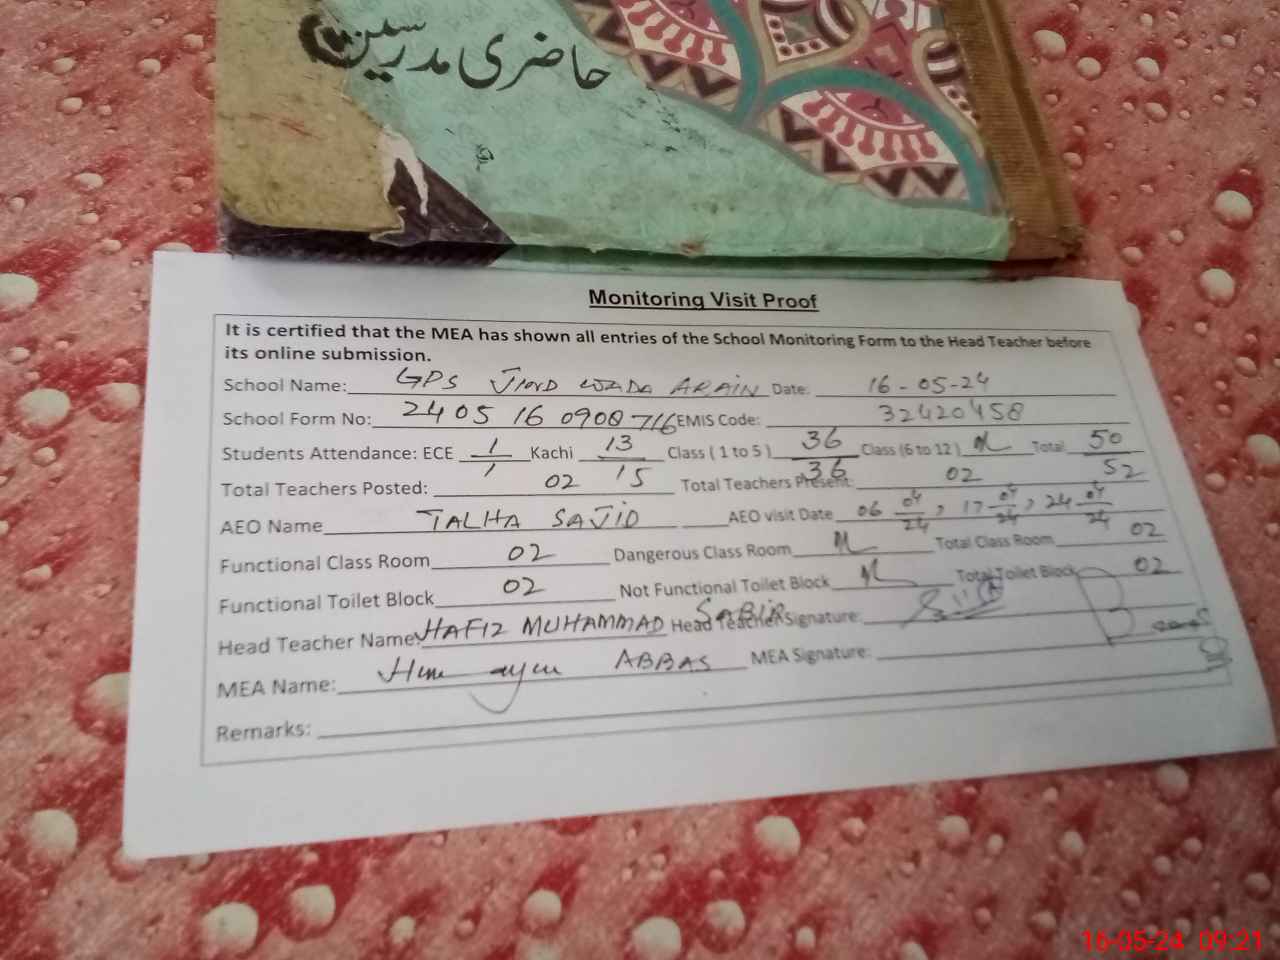 حاضری مدرسین
Monitoring Visit Proof
It is certified that the MEA has shown all entries of the School Monitoring Form to the Head Teacher before
its online submission.
School Name: GPS WADA ARAIN Date: 16-05-24
School Form No: 24 05 16 0908 716 EMIS Code: 32420458
Students Attendance: ECE 1/1 Kachi 13/15 Class ( 1 to 5 ) 36/36 Class (6 to 12 ) Total 50/52
Total Teachers Posted: 02 Total Teachers Present: 02
AEO Name TALHA SAJID AEO visit Date 06 04/24, 17 04/24, 24 04/24
Functional Class Room 02 Dangerous Class Room Total Class Room 02
Functional Toilet Block 02 Not Functional Toilet Block Total Toilet Block 02
Head Teacher Name: HAFIZ MUHAMMAD SABIR Head Teacher Signature:
MEA Name: ABBAS MEA Signature:
Remarks:
16-05-24 09:21